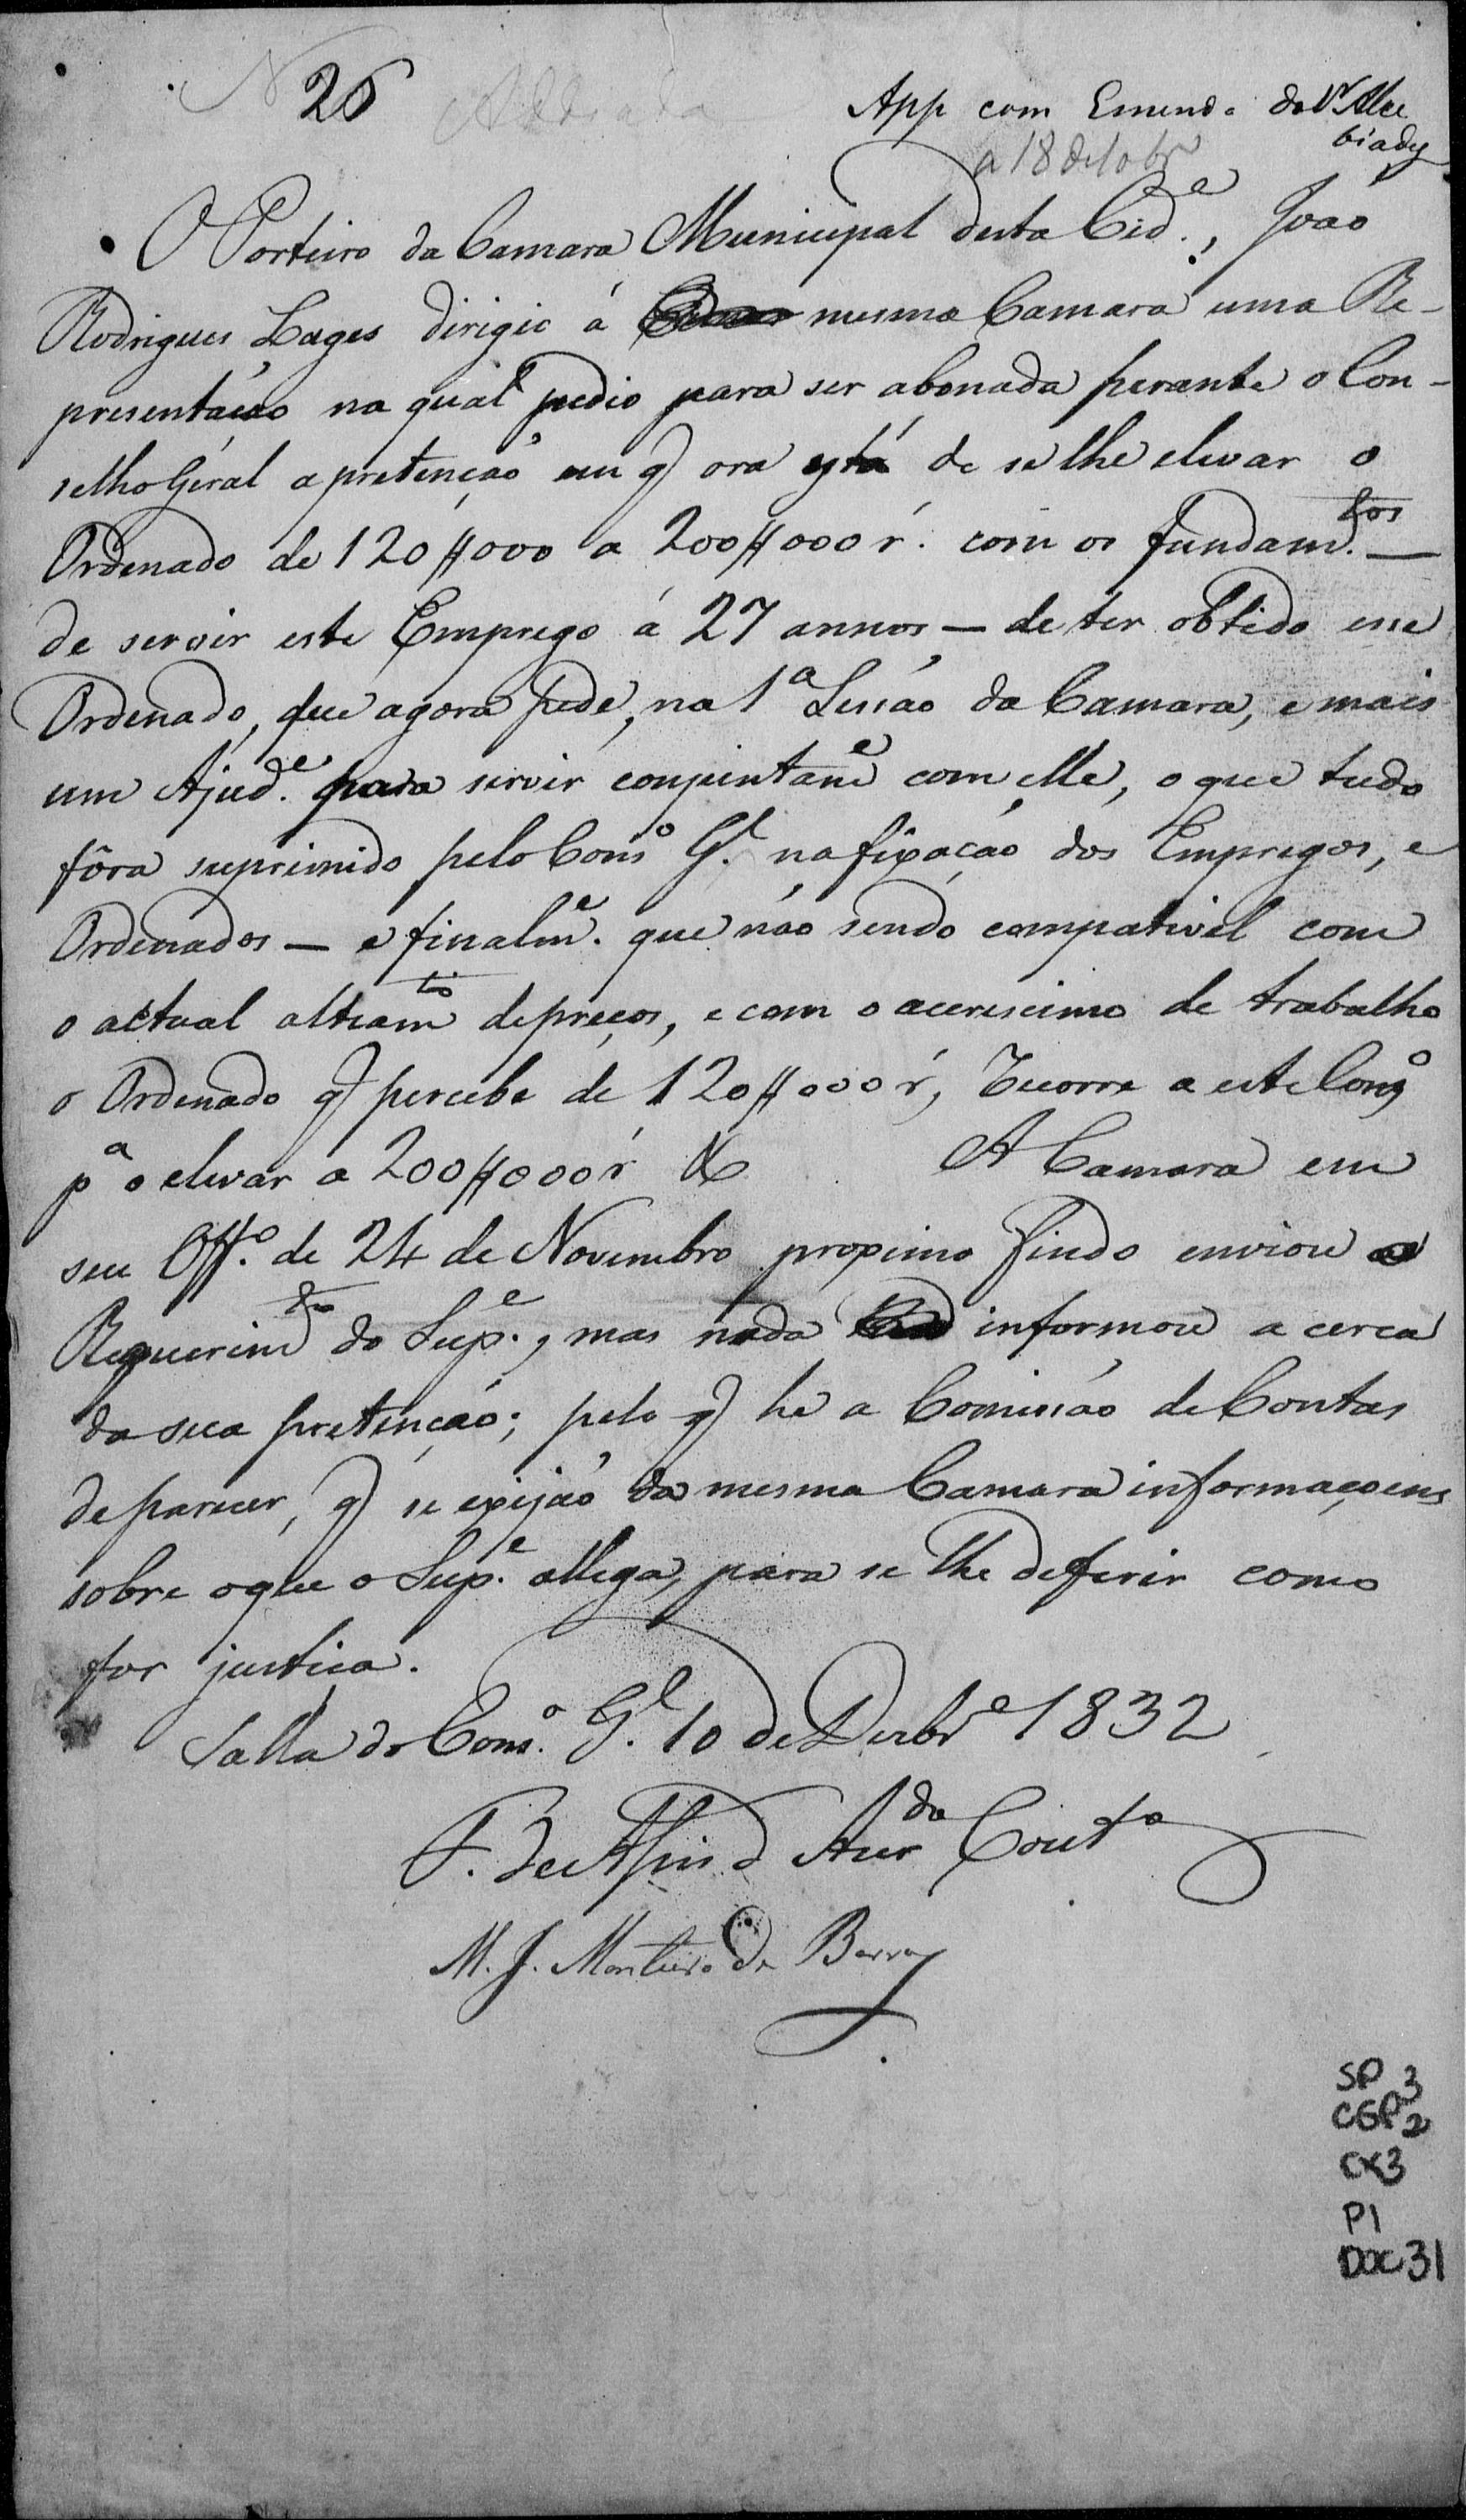 N 26 Addiada
App com Emenda do Sr Alce
biades
a 18 de 10br.º
O Porteiro da Camara Municipal desta Cid.e, João
Rodrigues Lages dirigio á mesma Camara uma Re-
presentação na qual pedio para ser abonada perante o Con-
selho Geral a pretenção em q ora está de se lhe elevar o
Ordenado de 120$000 a 200$000 r. com os fundam.tos —
de servir este Emprego á 27 annos — de ter obtido esse
Ordenado, que agora pede, na 1ª Sessão da Camara, e mais
um Ajud.e para servir conjuntame com elle, o que tudo
fôra suprimido pelo Conso G.l na fixação dos Empregos, e
Ordenados — e finalm.e que não sendo compativel com
o actual alteamto de preços, e com o accrescimo de trabalho
o Ordenado q percebe de 120$000 r, recorre a este Conso
pa o elevar a 200$000 r &
A Camara em
seu Off.o de 24 de Novembro proximo findo enviou o
Requerimto do Sup.e, mas nada informou a cerca
da sua pretenção; pelo q he a Comissão de Contas
de parecer, q se exijão da mesma Camara informaçoens
sobre o que o Sup.e allega, para se lhe deferir como
for justiça.
Salla do Cons.o G.l 10 de Dezbr.e 1832
F. de Assis d Azer.do Cout.o
M. J. Monteiro de Barros
SP 3
CGP 2
CX3
P1
DOC 31